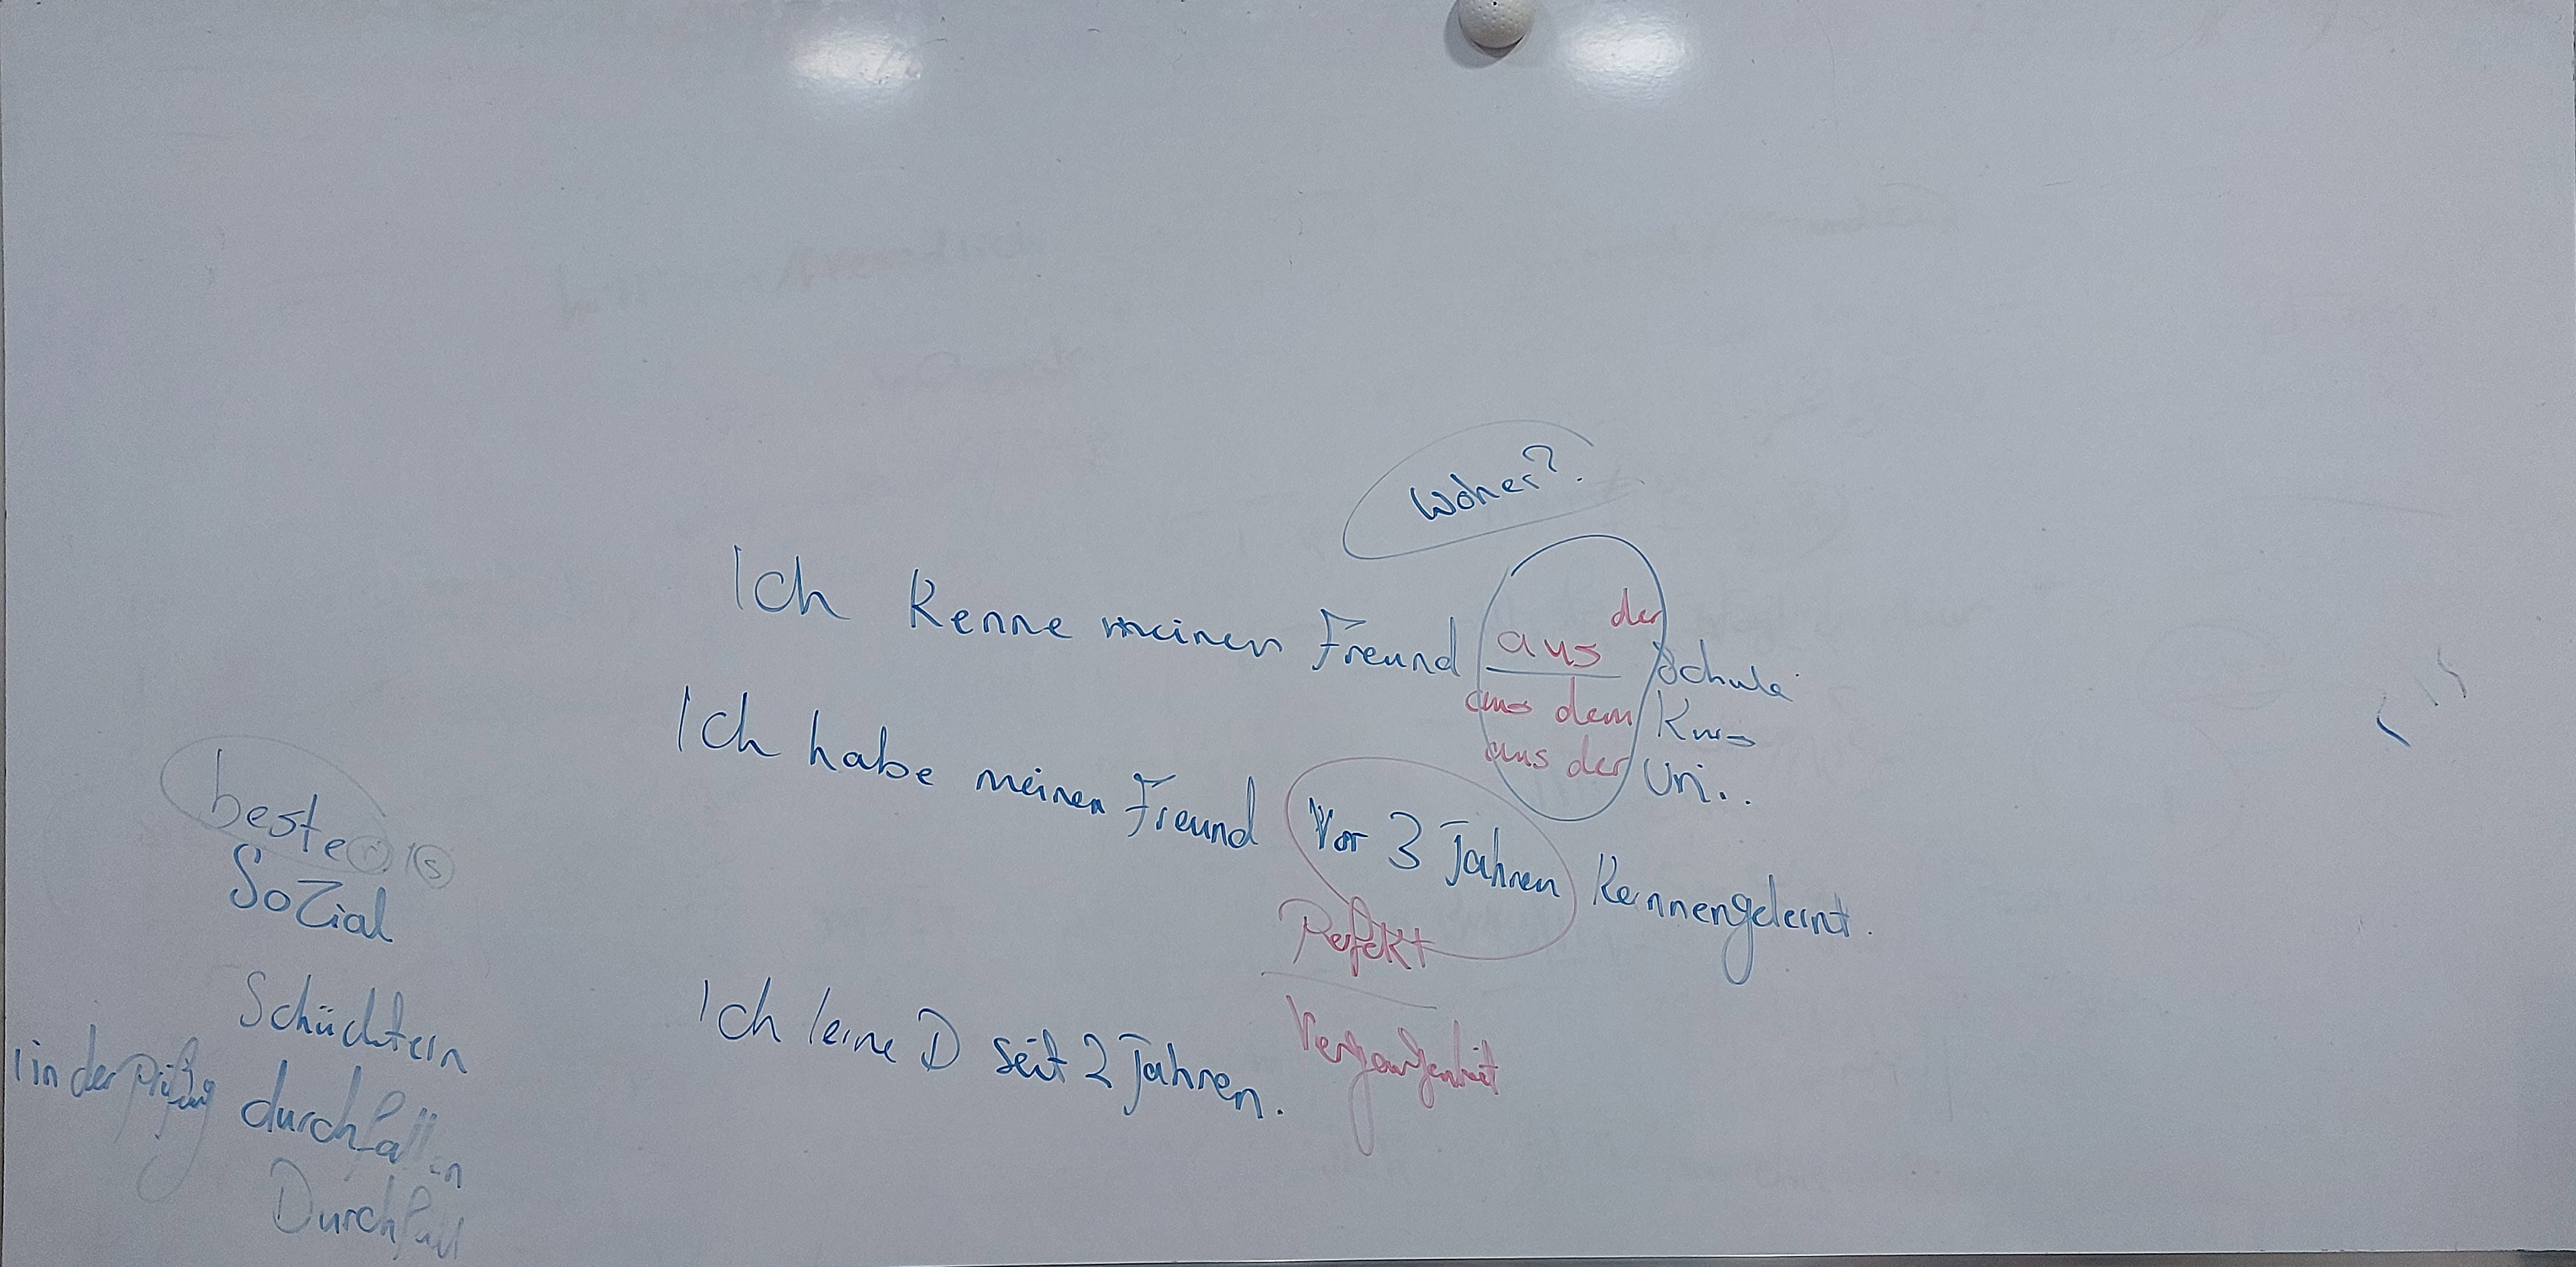 Woher?
Ich Kenne meinen Freund aus der Schule
aus dem Kurs
aus der Uni..
Ich habe meinen Freund Vor 3 Jahren Kennengelernt.
Perfekt
Vergangenheit
Ich lerne D seit 2 Jahren.
beste r/s
Sozial
Schüchtern
in der Prüfung durchfallen
Durchfall